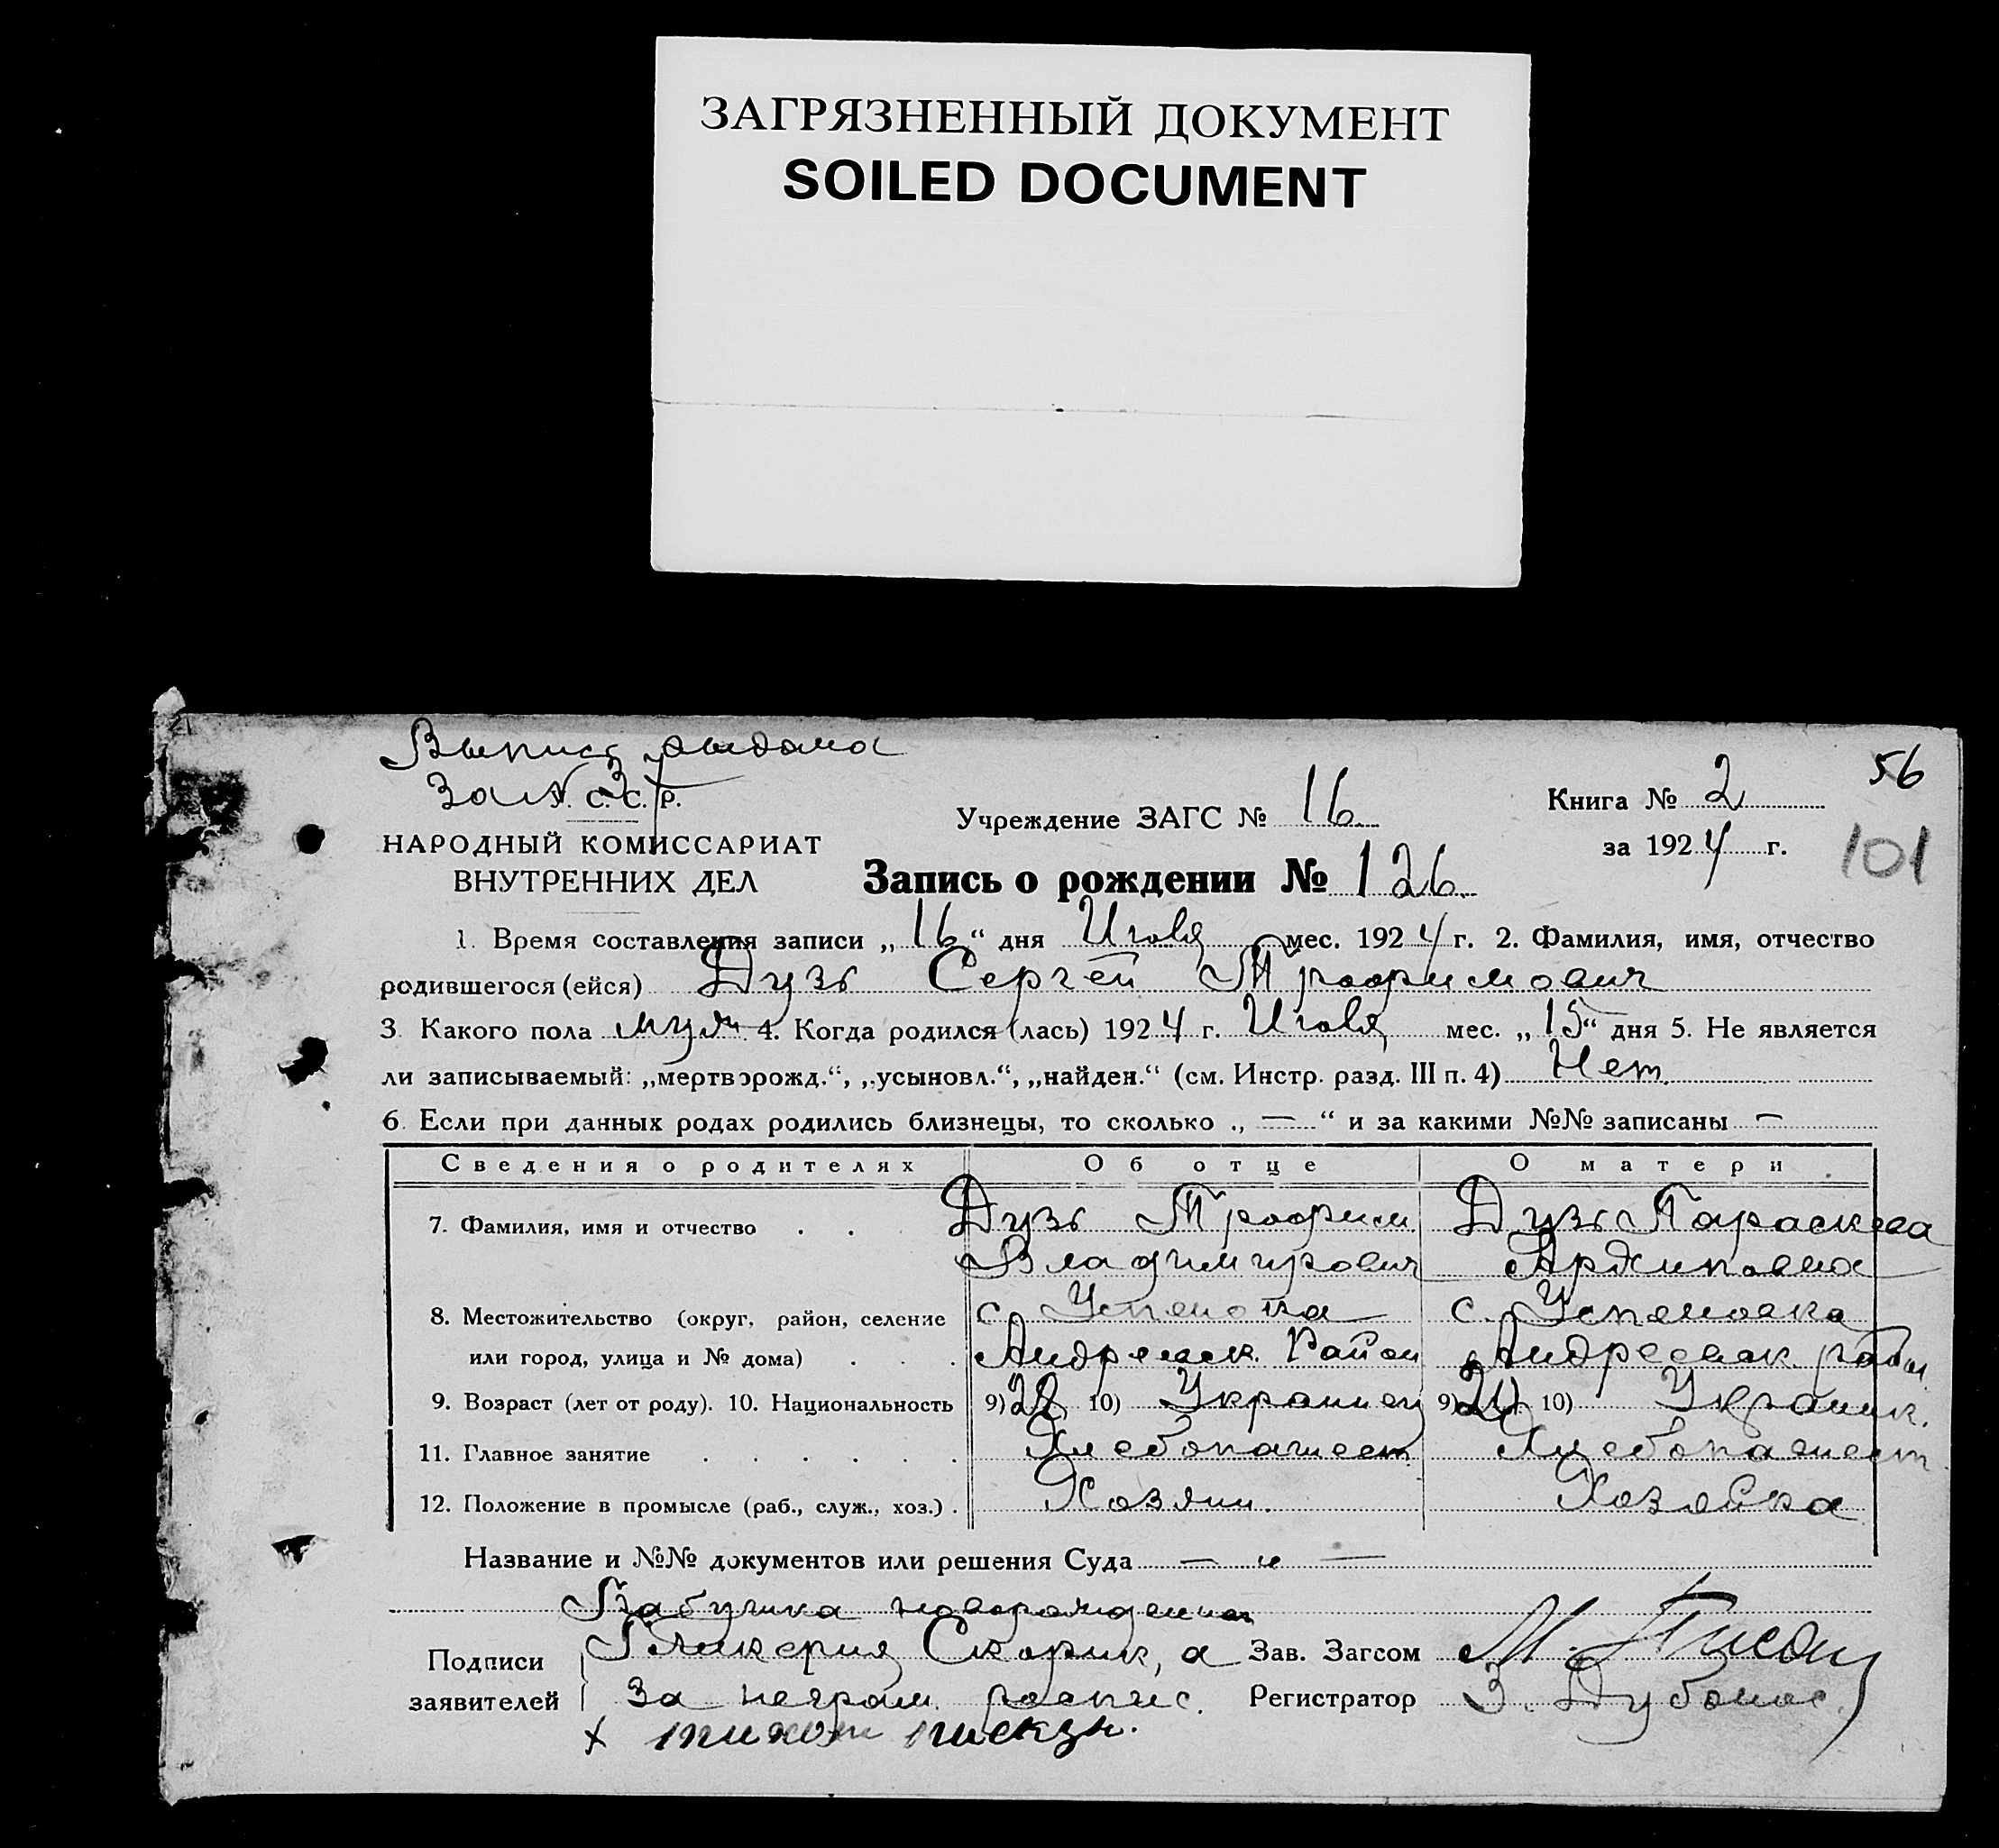 ЗАГРЯЗНЕННЫЙ ДОКУМЕНТ
SOILED DOCUMENT
Выпись выдана
За № 37
У. С. С. Р.
НАРОДНЫЙ КОМИССАРИАТ
ВНУТРЕННИХ ДЕЛ
Учреждение ЗАГС № 16
Книга № 2
56
за 1924 г.
101
Запись о рождении № 126
1. Время составления записи „16“ дня Июля мес. 1924 г. 2. Фамилия, имя, отчество
родившегося (ейся) Дузь Сергей Трофимович
3. Какого пола муж 4. Когда родился (лась) 1924 г. Июля мес. „15“ дня 5. Не является
ли записываемый: „мертворожд.“, „усыновл.“, „найден.“ (см. Инстр. разд. III п. 4) Нет
6. Если при данных родах родились близнецы, то сколько „—“ и за какими №№ записаны —
Сведения о родителях Об отце О матери
7. Фамилия, имя и отчество . . Дузь Трофим Дузь Параскева
Владимирович Архиповна
8. Местожительство (округ, район, селение с. с. Успеновка
или город, улица и № дома) . . . Андреевск. Район Андреевск. район
9. Возраст (лет от роду). 10. Национальность 9) 28 10) Украинец 9) 10) Украинк.
11. Главное занятие . . . . . . Хлебопашест Хлебопашест
12. Положение в промысле (раб., служ., хоз.) . Хозяин. Хозяйка
Название и №№ документов или решения Суда — „ —
Бабушка новорожденная
Подписи Гликерия Скорик, а Зав. Загсом М.
заявителей За неграм. роспис. Регистратор З. Дубонос